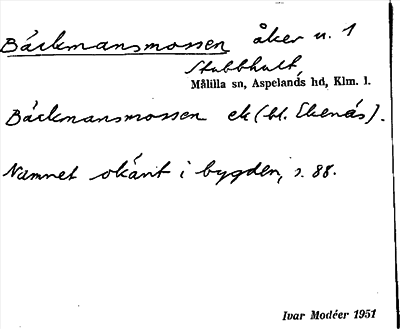 Bäckmansmossen åker n. 1
Stubbhult
Målilla sn, Aspelands hd, Klm. l.
Bäckmansmossen ek (bl. Ekenäs).
Namnet okänt i bygden, s. 88.
Ivar Modéer 1951